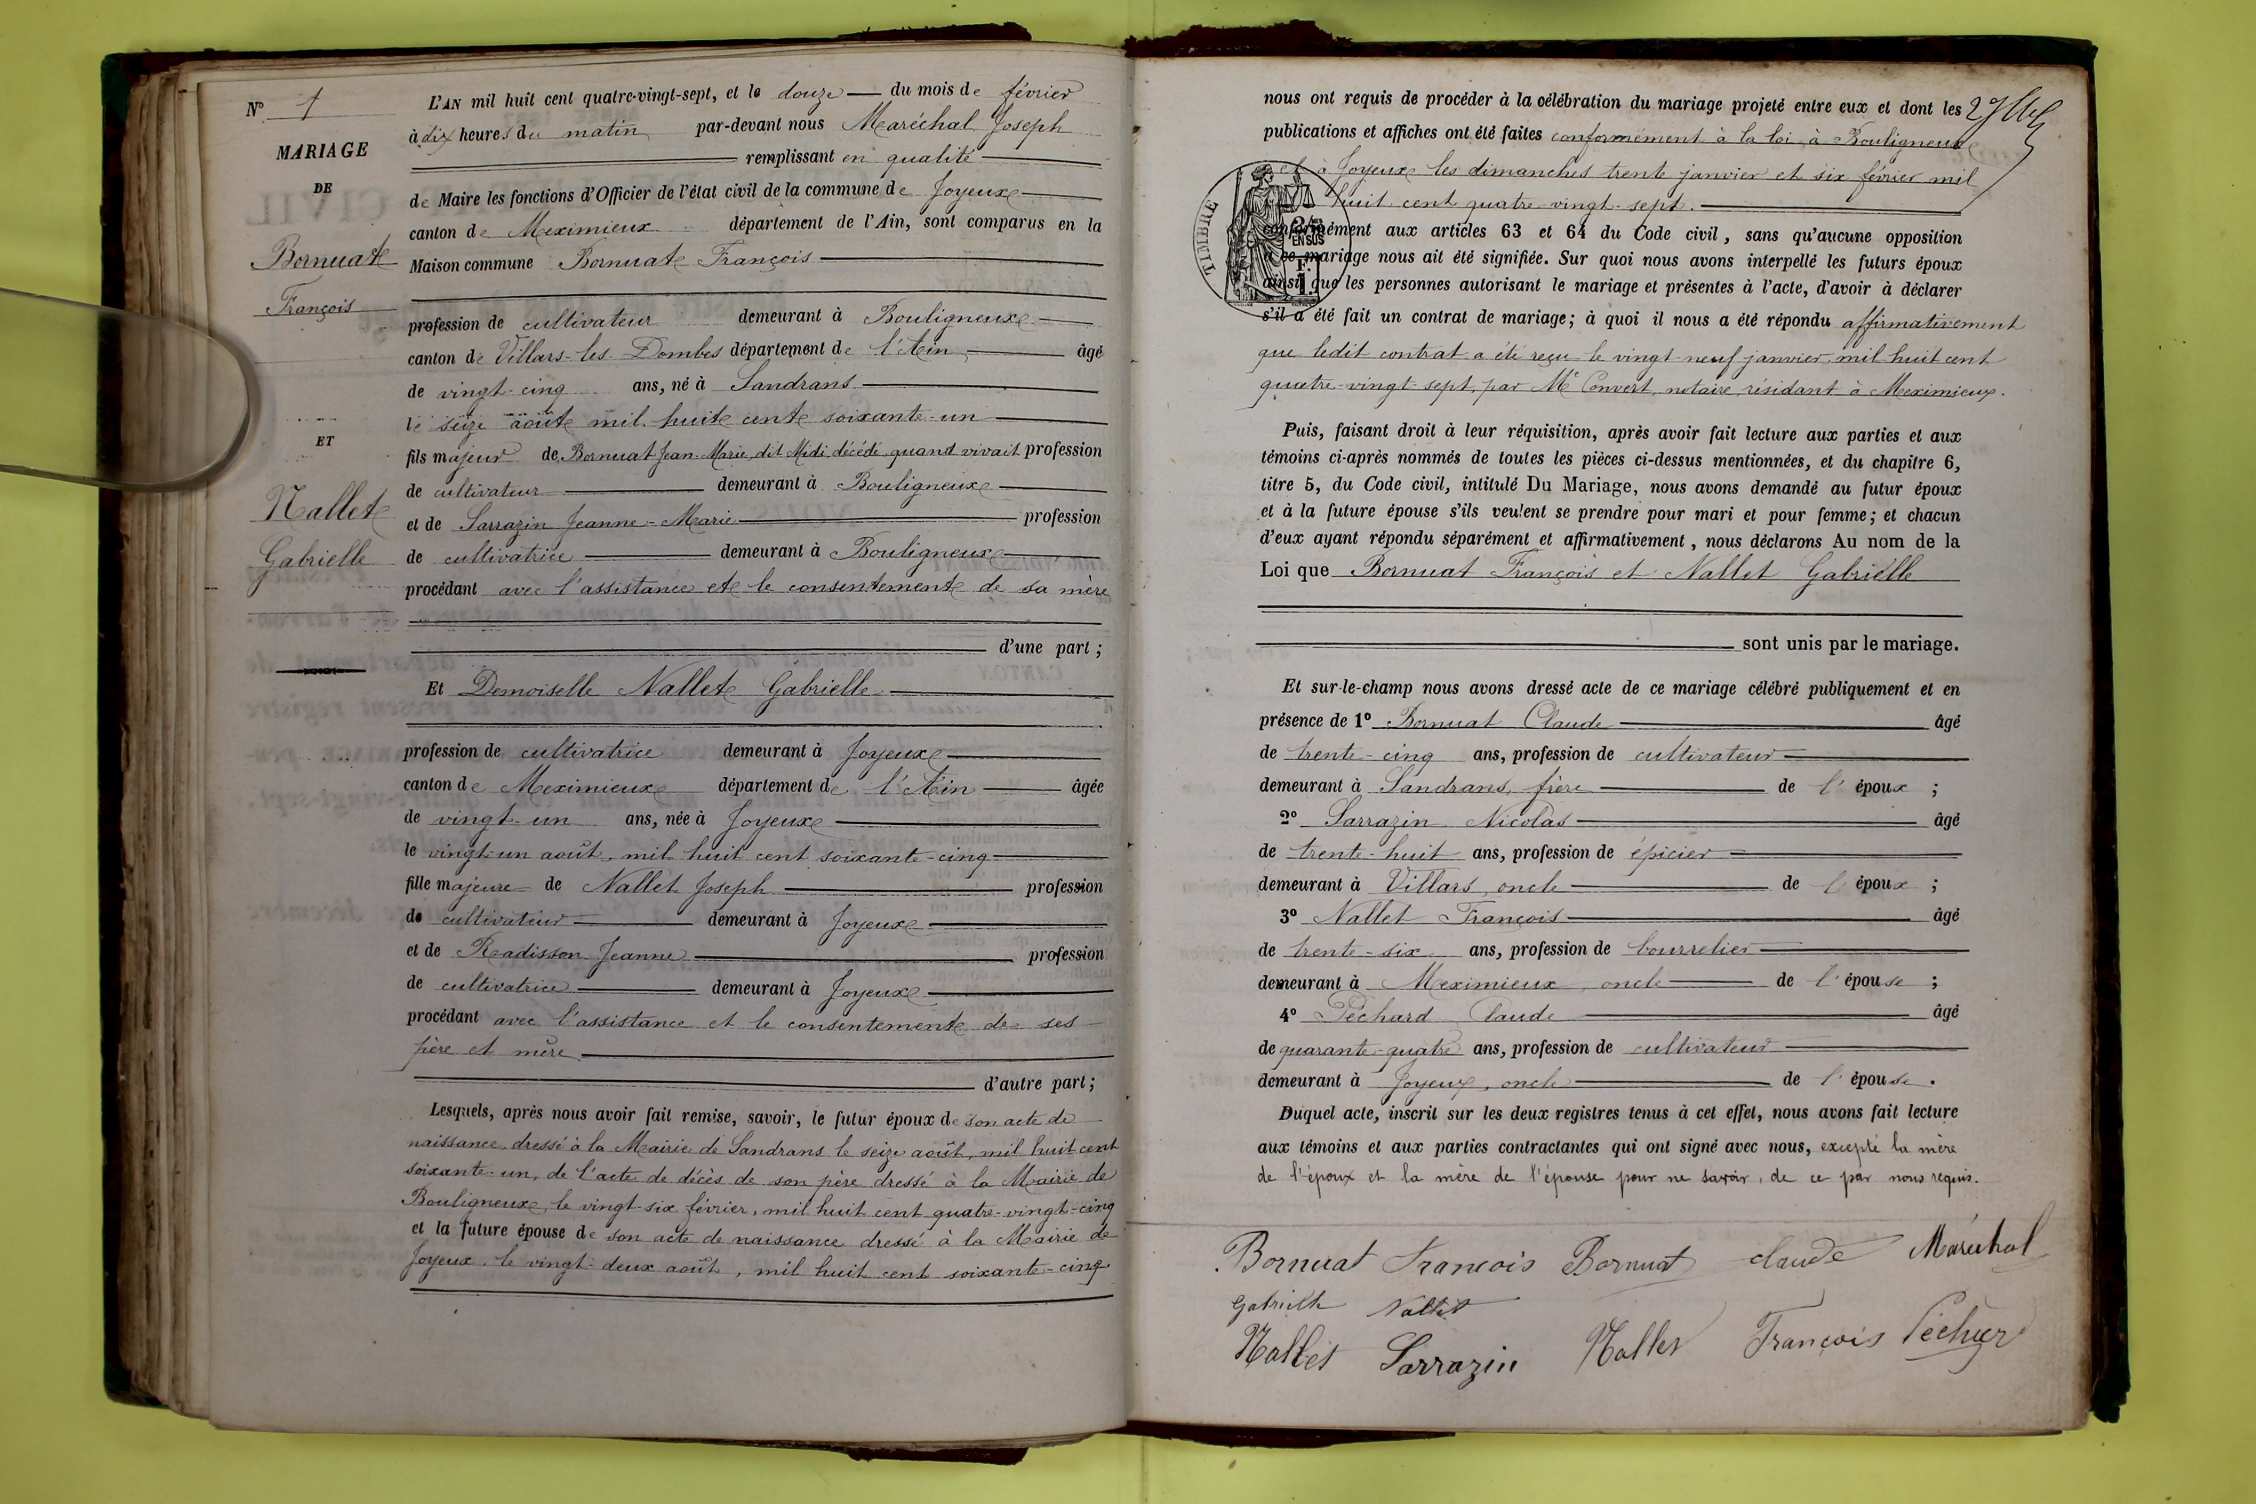 N° 1
MARIAGE
DE
Bornuat
François
ET
Nallet
Gabrielle
L'AN mil huit cent quatre-vingt-sept, et le douze du mois de février
à dix heures du matin par-devant nous Maréchal Joseph
remplissant en qualité
de Maire les fonctions d'Officier de l'état civil de la commune de Joyeux
canton de Meximieux département de l'Ain, sont comparus en la
Maison commune Bornuat François
profession de cultivateur demeurant à Bouligneux
canton de Villars-les-Dombes département de l'Ain âgé
de vingt-cinq ans, né à Sandrans
le seize août mil huit cent soixante-un
fils majeur de Bornuat Jean-Marie, dit Midi, décédé, quand vivait profession
de cultivateur demeurant à Bouligneux
et de Sarrazin Jeanne-Marie profession
de cultivatrice demeurant à Bouligneux
procédant avec l'assistance et le consentement de sa mère
d'une part;
Et Demoiselle Nallet Gabrielle
profession de cultivatrice demeurant à Joyeux
canton de Meximieux département de l'Ain âgée
de vingt-un ans, née à Joyeux
le vingt-un août, mil huit cent soixante-cinq
fille majeure de Nallet Joseph profession
de cultivateur demeurant à Joyeux
et de Radisson Jeanne profession
de cultivatrice demeurant à Joyeux
procédant avec l'assistance et le consentement de ses
père et mère
d'autre part;
Lesquels, après nous avoir fait remise, savoir, le futur époux de son acte de
naissance dressé à la Mairie de Sandrans le seize août, mil huit cent
soixante-un, de l'acte de décès de son père dressé à la Mairie de
Bouligneux, le vingt-six février, mil huit cent quatre-vingt-cinq
et la future épouse de son acte de naissance dressé à la Mairie de
Joyeux, le vingt-deux août, mil huit cent soixante-cinq
nous ont requis de procéder à la célébration du mariage projeté entre eux et dont les
publications et affiches ont été faites conformément à la loi à Bouligneux
et à Joyeux les dimanches trente janvier et six février mil
huit cent quatre-vingt-sept.
TIMBRE
EN SUS
conformément aux articles 63 et 64 du Code civil, sans qu'aucune opposition
à ce mariage nous ait été signifiée. Sur quoi nous avons interpellé les futurs époux
ainsi que les personnes autorisant le mariage et présentes à l'acte, d'avoir à déclarer
s'il a été fait un contrat de mariage; à quoi il nous a été répondu affirmativement
que ledit contrat a été reçu le vingt-neuf janvier, mil huit cent
quatre-vingt-sept, par Me Convert, notaire, résidant à Meximieux.
Puis, faisant droit à leur réquisition, après avoir fait lecture aux parties et aux
témoins ci-après nommés de toutes les pièces ci-dessus mentionnées, et du chapitre 6,
titre 5, du Code civil, intitulé Du Mariage, nous avons demandé au futur époux
et à la future épouse s'ils veulent se prendre pour mari et pour femme; et chacun
d'eux ayant répondu séparément et affirmativement, nous déclarons Au nom de la
Loi que Bornuat François et Nallet Gabrielle
sont unis par le mariage.
Et sur-le-champ nous avons dressé acte de ce mariage célébré publiquement et en
présence de 1° Bornuat Claude âgé
de trente-cinq ans, profession de cultivateur
demeurant à Sandrans, frère de l'époux;
2° Sarrazin Nicolas âgé
de trente-huit ans, profession de épicier
demeurant à Villars, oncle de l'époux;
3° Nallet François âgé
de trente-six ans, profession de bourrelier
demeurant à Meximieux, oncle de l'épouse;
4° Péchard Claude âgé
de quarante-quatre ans, profession de cultivateur
demeurant à Joyeux, oncle de l'épouse.
Duquel acte, inscrit sur les deux registres tenus à cet effet, nous avons fait lecture
aux témoins et aux parties contractantes qui ont signé avec nous, excepté la mère
de l'époux et la mère de l'épouse pour ne savoir, de ce par nous requis.
Bornuat François Bornuat claude Maréchal
Gabrielle Nallet
Nallet Sarrazin Nallet François